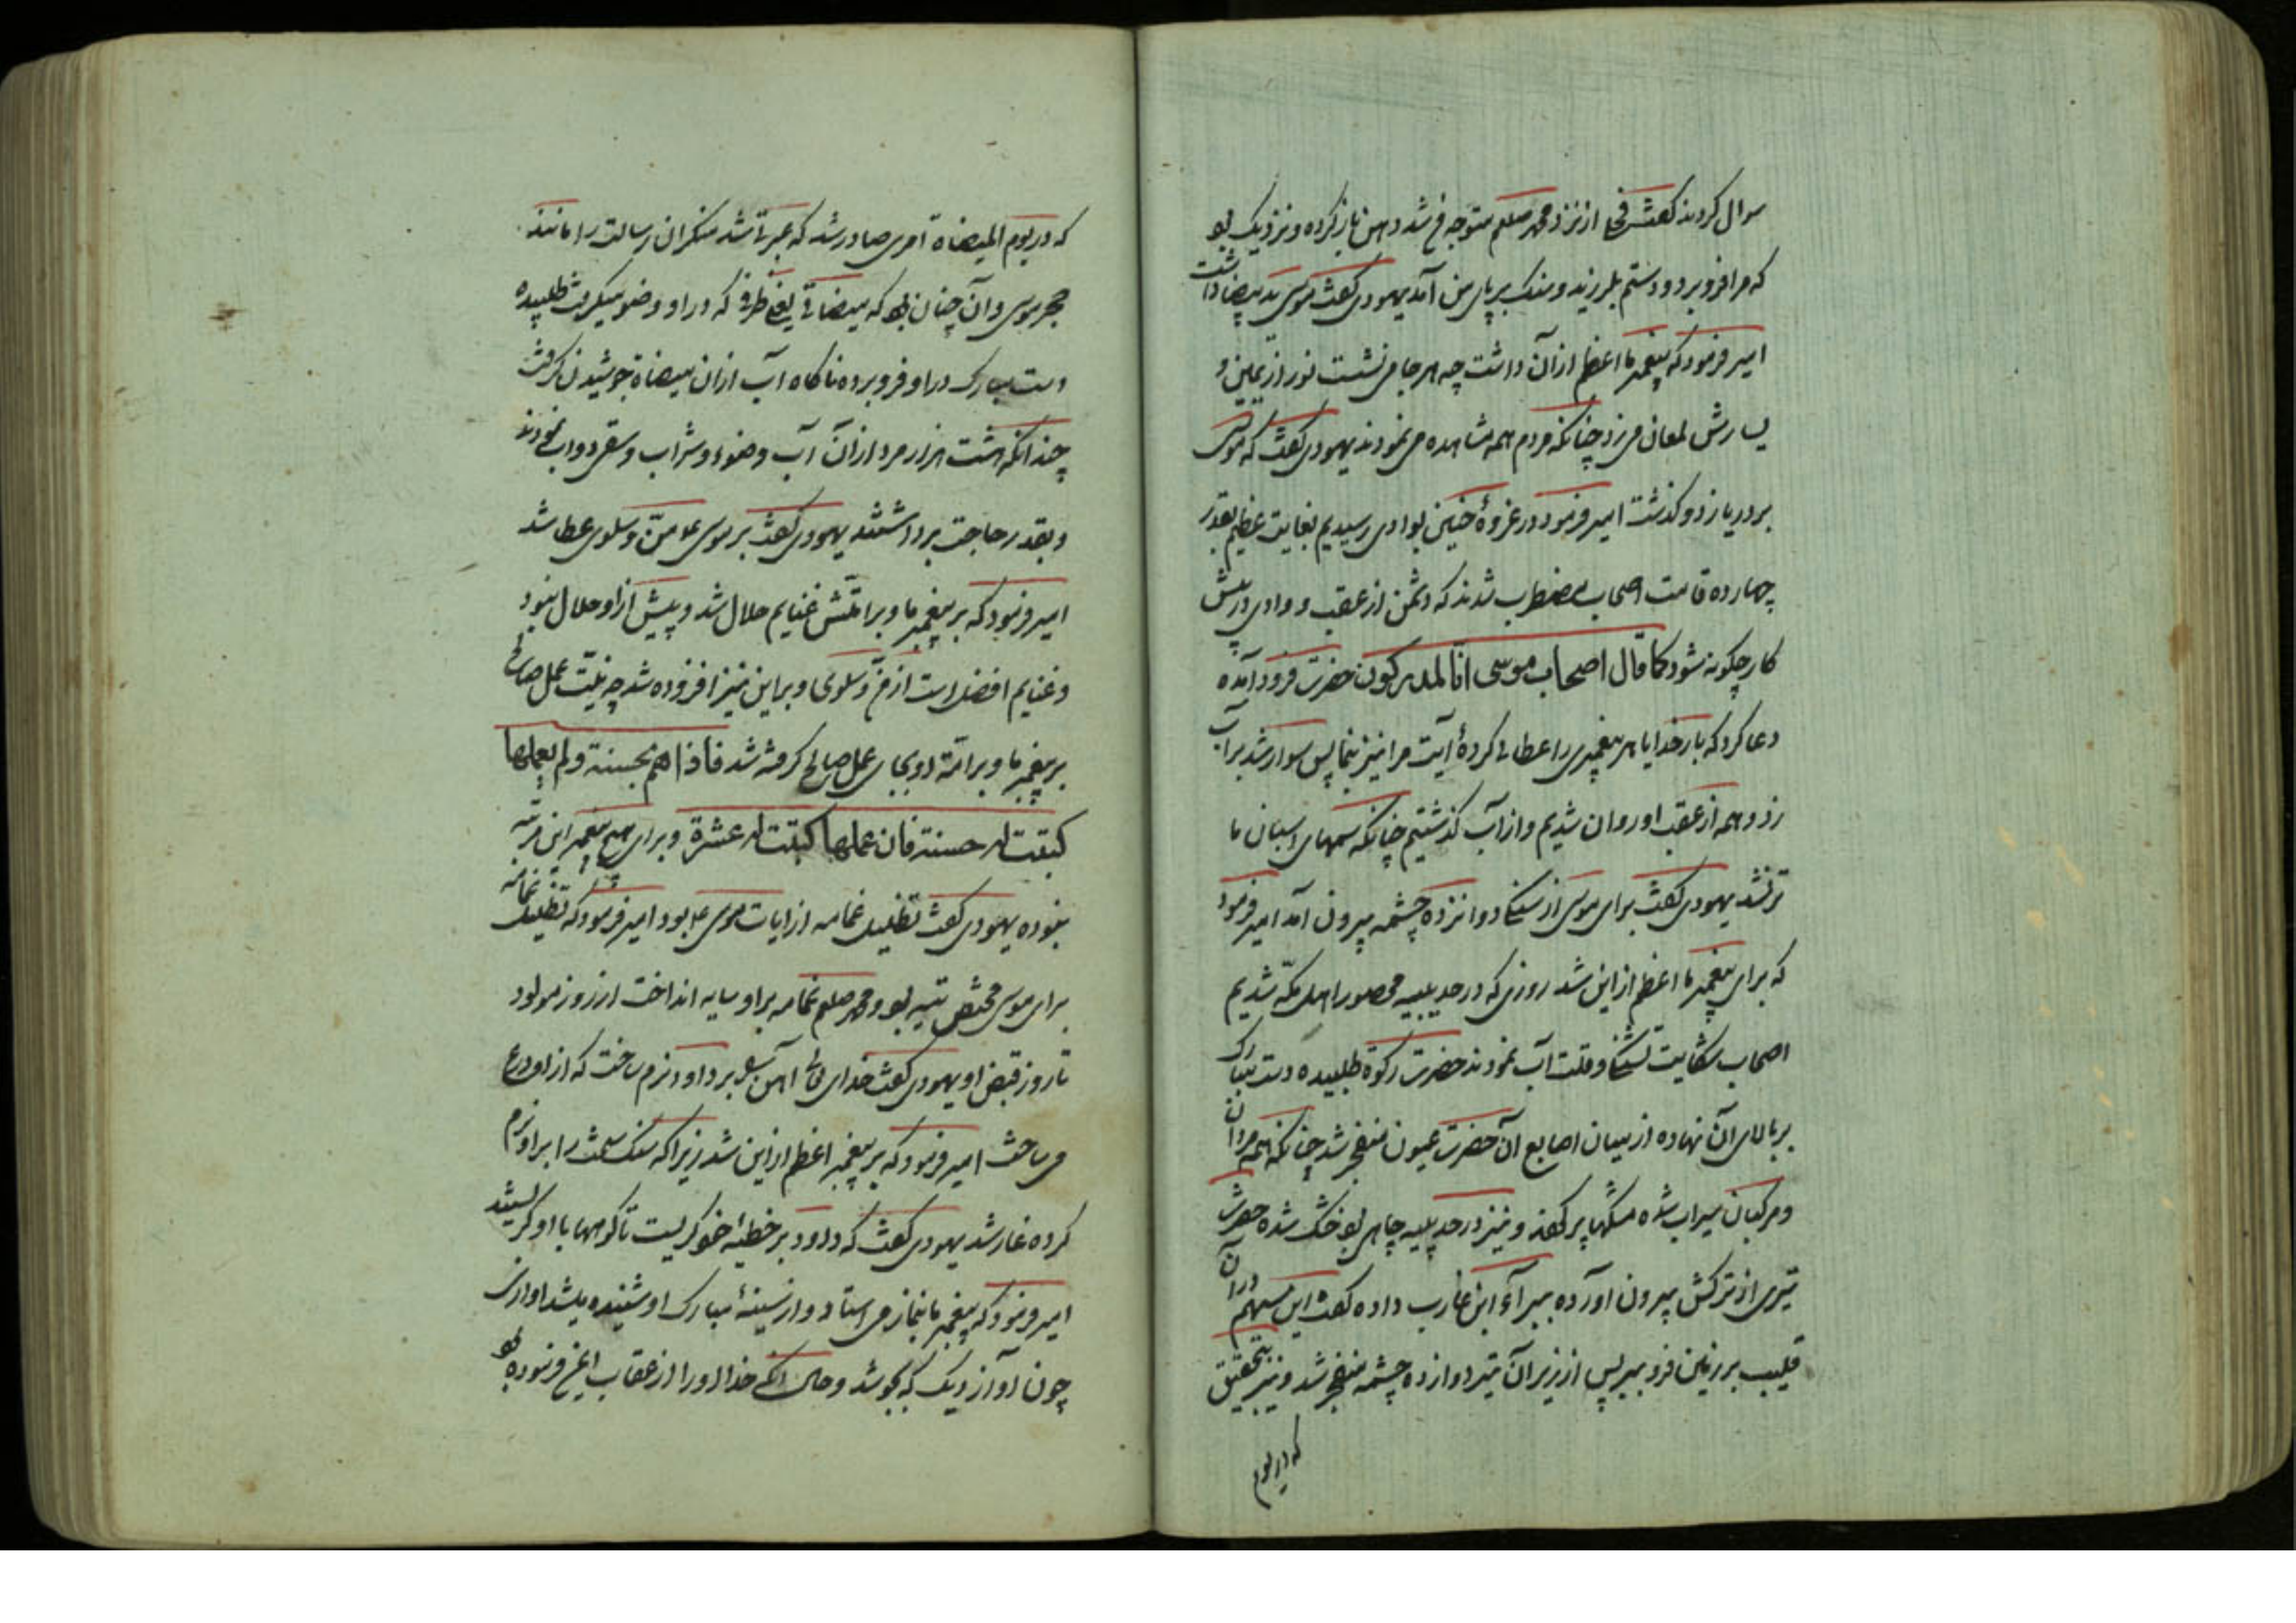 سوال کردند کفت فحلی از نزد محمد صلعم متوجه من شد دهن باز کرده و نزدیک بو
که مرا فرو برد و دستم بلرزید و سنک بر پای من آمد یهودی کفت موسی ید بیضا داشت
امیر فرمود که پیغمبر ما اعظم از آن داشت چه هر جا می نشست نور از یمین و
یسارش لمعان می زد چنانکه مردم همه مشاهده می نمودند یهودی کفت که موسی
بر دریا زد و کذشت امیر فرمود در غزوهٔ حنین بوادی رسیدیم بغایت عظیم بقدر
چهارده قامت اصحاب مضطرب شدند که دشمن از عقب و وادی در پیش
کار چکونه شود کما قال اصحاب موسی انا لمدرکون حضرت فرود آمده
دعا کرد که بار خدایا هر پیغمبری را عطا کردهٔ آیت مرا نیز بنما پس سوار شد بر آب
زد و همه از عقب او روان شدیم و از آب کذشتیم چنانکه سمهای اسبان ما
تر نشد یهودی کفت برای موسی از سنک دوانزده چشمه بیرون آمد امیر فرمود
که برای پیغمبر ما اعظم از این شد روزی که در حدیبیه محصور اهل مکّه شدیم
اصحاب شکایت تشنکی و قلت آب نمودند حضرت رکوة طلبیده دست مبارک
بر بالای آن نهاده از میان اصابع آن حضرت عیون منفجر شد چنانکه همه مردان
و مرکبان سیراب شده مشکها پر کفند و نیز در حدیبیه چاهی بو خشک شده حضرت
تیری از ترکش بیرون آورده ببرآء ابن عازب داده کفت این سهم در آن
قلیب بر زمین فرو ببر پس از زیر آن تیر دوازده چشمه منفجر شد و نیز بتحقیق
که در یوم
که در یوم المیضاة امری صادر شد که عبرت شد منکران رسالت را مانند
حجر موسی و آن چنان بو که میضاتی یعنی ظرفی که در او وضو میکرفت طلبیده
دست مبارک در او فرو برده ناکاه آب از ان میضاة جوشیدن کرفت
چندانکه هشت هزار مرد از آن آب وضوء و شراب و سقی دواب نمودند
و بقدر حاجت برداشتند یهودی کفت بر موسی ع منّ و سلوی عطا شد
امیر فرمود که بر پیغمبر ما و بر امّتش غنایم حلال شد و پیش از او حلال نبود
و غنایم افضل است از منّ و سلوی و بر این نیز افزوده شد چه نیّت عمل صالح
بر پیغمبر ما و بر امّة او بجای عمل صالح کرفته شد فاذا هم بحسنة و لم یعملها
کتبت له حسنة فان عملها کتبت له عشرة و برای هیچ پیغمبر این مرتبه
نبوده یهودی کفت تظلیل غمامه از ایات موسی ع بود امیر فرمود که تظلیل غمامه
برای موسی مختص تیه بو و محمد صلعم غمامه بر او سایه انداخت از روز مولود
تا روز قبض او یهودی کفت خدای تعالی آهن بر داود نرم ساخت که از او درع
می ساخت امیر فرمود که بر پیغمبر اعظم از این شد زیرا که سنک سخت را بر او نرم
کرده غار شد یهودی کفت که داود بر خطیئه خو کریست تا کوهها با او کریستند
امیر فرمود که پیغمبر ما بنماز می استاد و از سینهٔ مبارک او شنیده میشد اوازی
چون آواز دیک که بجوشد و حال آنکه خدا او را از عقاب ایمن فرموده بو